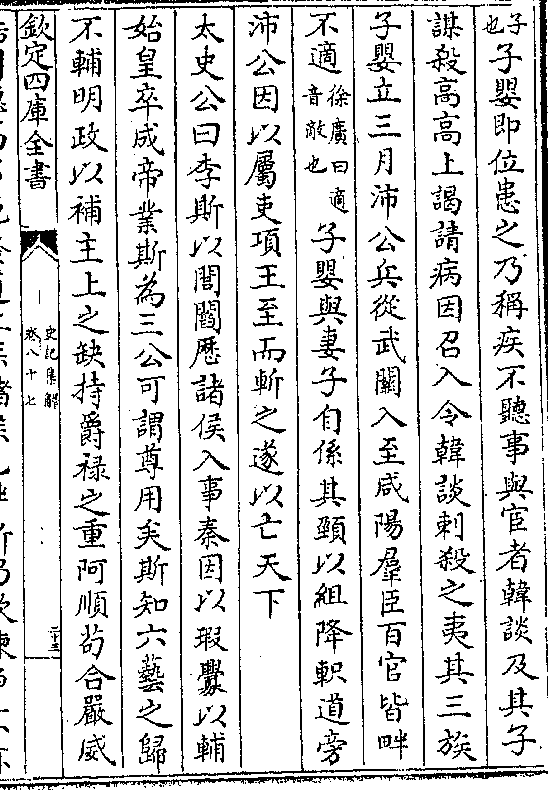 子也子嬰即位患之乃稱疾不聽事與宦者韓談及其子
謀殺高高上謁請病因召入令韓談刺殺之夷其三族
子嬰立三月沛公兵從武關入至咸陽羣臣百官皆畔
不適徐廣曰適音敵也子嬰與妻子自係其頸以組降軹道旁
沛公因以屬吏項王至而斬之遂以亡天下
太史公曰李斯以閭閻歷諸侯入事秦因以瑕釁以輔
始皇卒成帝業斯為三公可謂尊用矣斯知六藝之歸
不輔明政以補主上之缺持爵祿之重阿順苟合嚴威
欽定四庫全書
史記集解
卷八十七
二十五